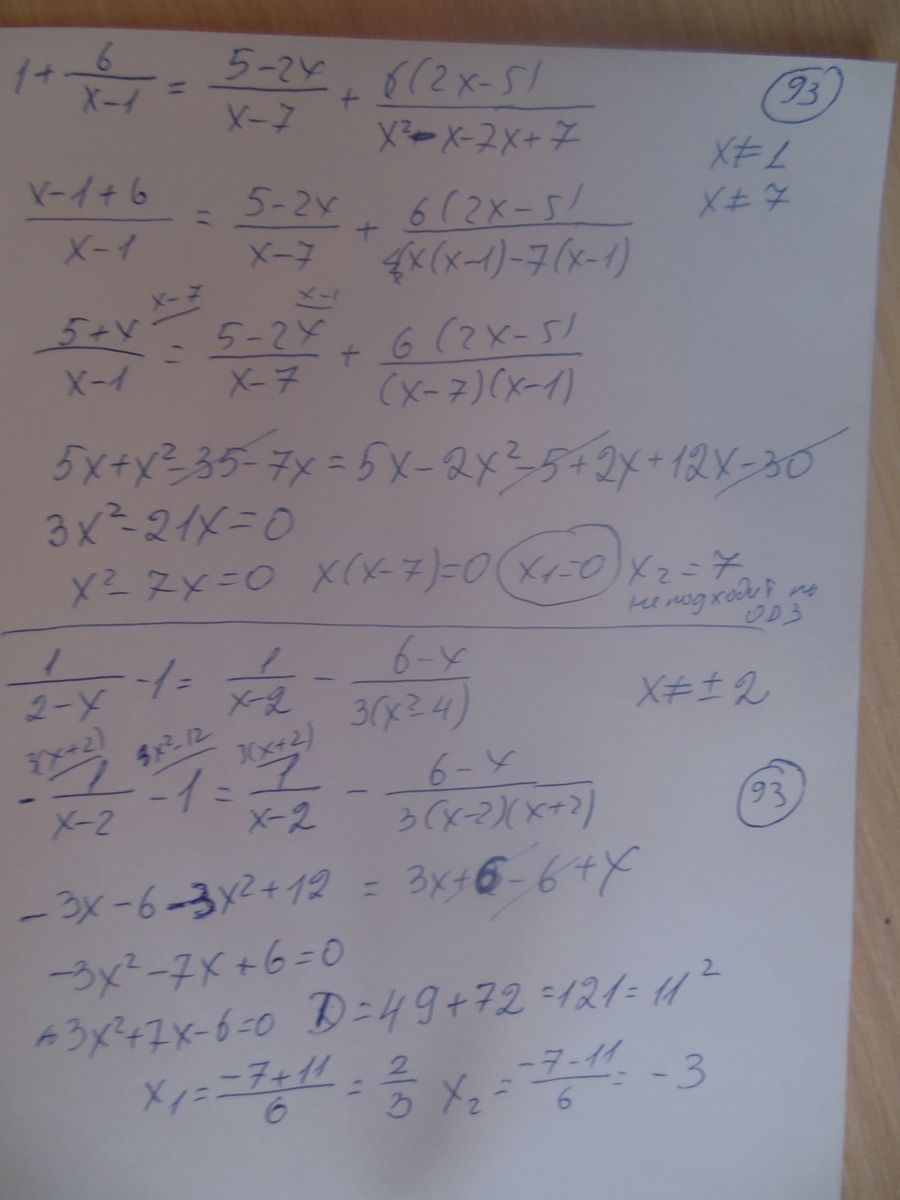 1 + 6/(x-1) = (5-2x)/(x-7) + 6(2x-5)/(x²-x-7x+7) (93)
x≠1
x≠7
(x-1+6)/(x-1) = (5-2x)/(x-7) + 6(2x-5)/(x(x-1)-7(x-1))
x-7 x-1
(5+x)/(x-1) = (5-2x)/(x-7) + 6(2x-5)/((x-7)(x-1))
5x+x²-35-7x=5x-2x²-5+2x+12x-30
3x²-21x=0
x²-7x=0 x(x-7)=0 x₁=0 x₂=7
не подходит по
ОДЗ
1/(2-x) -1= 1/(x-2) - (6-x)/(3(x²-4)) x≠±2
3(x+2) 3x²-12 3(x+2)
-1/(x-2) -1= 1/(x-2) - (6-x)/(3(x-2)(x+2)) (93)
-3x-6-3x²+12 = 3x+6-6+x
-3x²-7x+6=0
3x²+7x-6=0 D=49+72=121=11²
x₁=(-7+11)/6=2/3 x₂=(-7-11)/6=-3